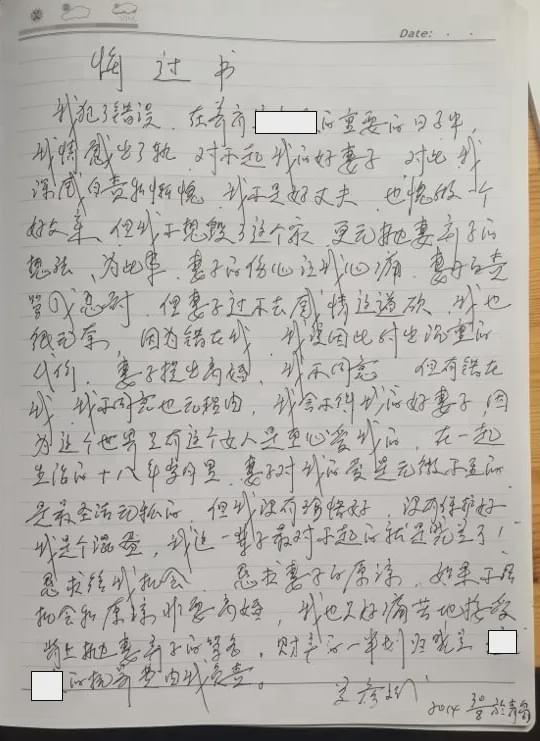 Date:
悔过书
我犯了错误,在养育的重要的日子中,
我情感出了轨,对不起我的好妻子,对此我
深感自责和惭愧,我不是好丈夫,也愧做一个
好父亲,但我不想毁了这个家,更无抛妻弃子的
想法,为此事,妻子的伤心让我心痛,妻子
但妻子过不去感情这道砍,我也
很无奈,因为错在我,我要因此付出沉重的
代价,妻子提出离婚,我不同意,但有错在
我,我不同意也无理由,我舍不得我的好妻子,因
为这个世界只有这个女人是真心爱我的,在一起
生活的十八年岁月里,妻子对我的爱是无微不至的
是最圣洁无私的,但我没有珍惜好,没有保护好
我是个混蛋,我这一辈子最对不起的就是晓兰了!
恳求给我机会 恳求妻子的原谅,如果不给
机会和原谅非要离婚,我也只好痛苦地接受
背上抛妻弃子的骂名,财产的一半划归晓兰
的抚养费由我负责。
2014 30/8 於青岛